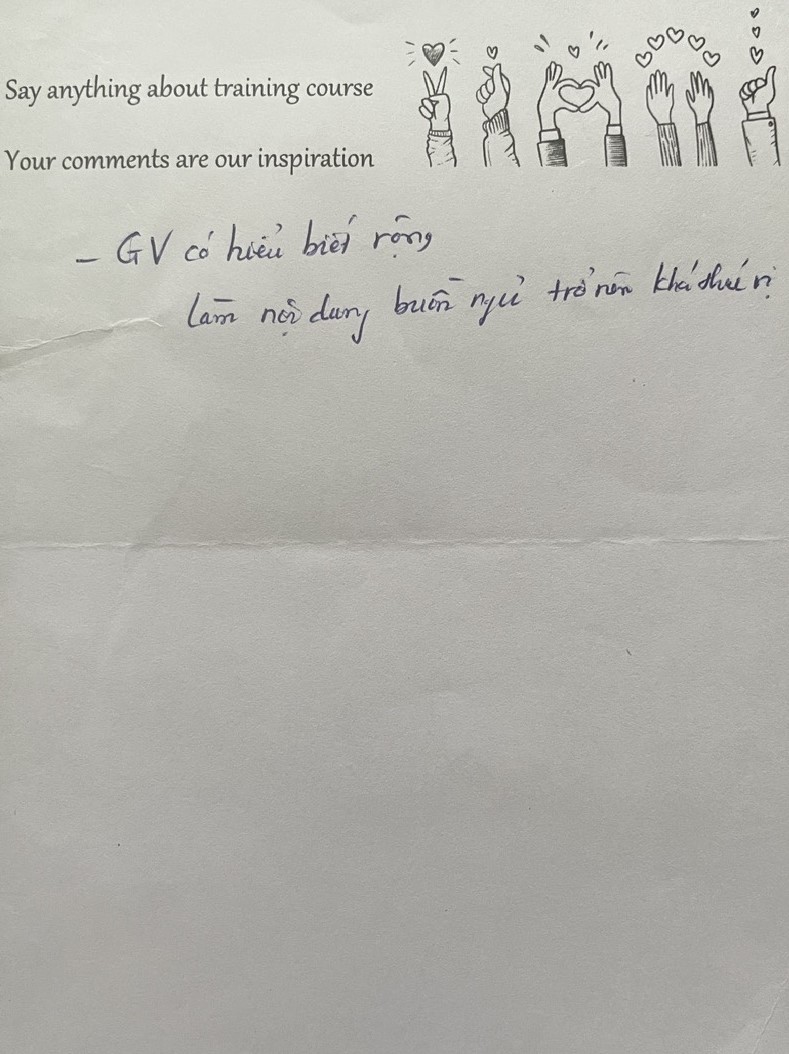 Say anything about training course
Your comments are our inspiration
- GV có hiểu biết rộng
làm nội dung buồn ngủ trở nên khá thú vị